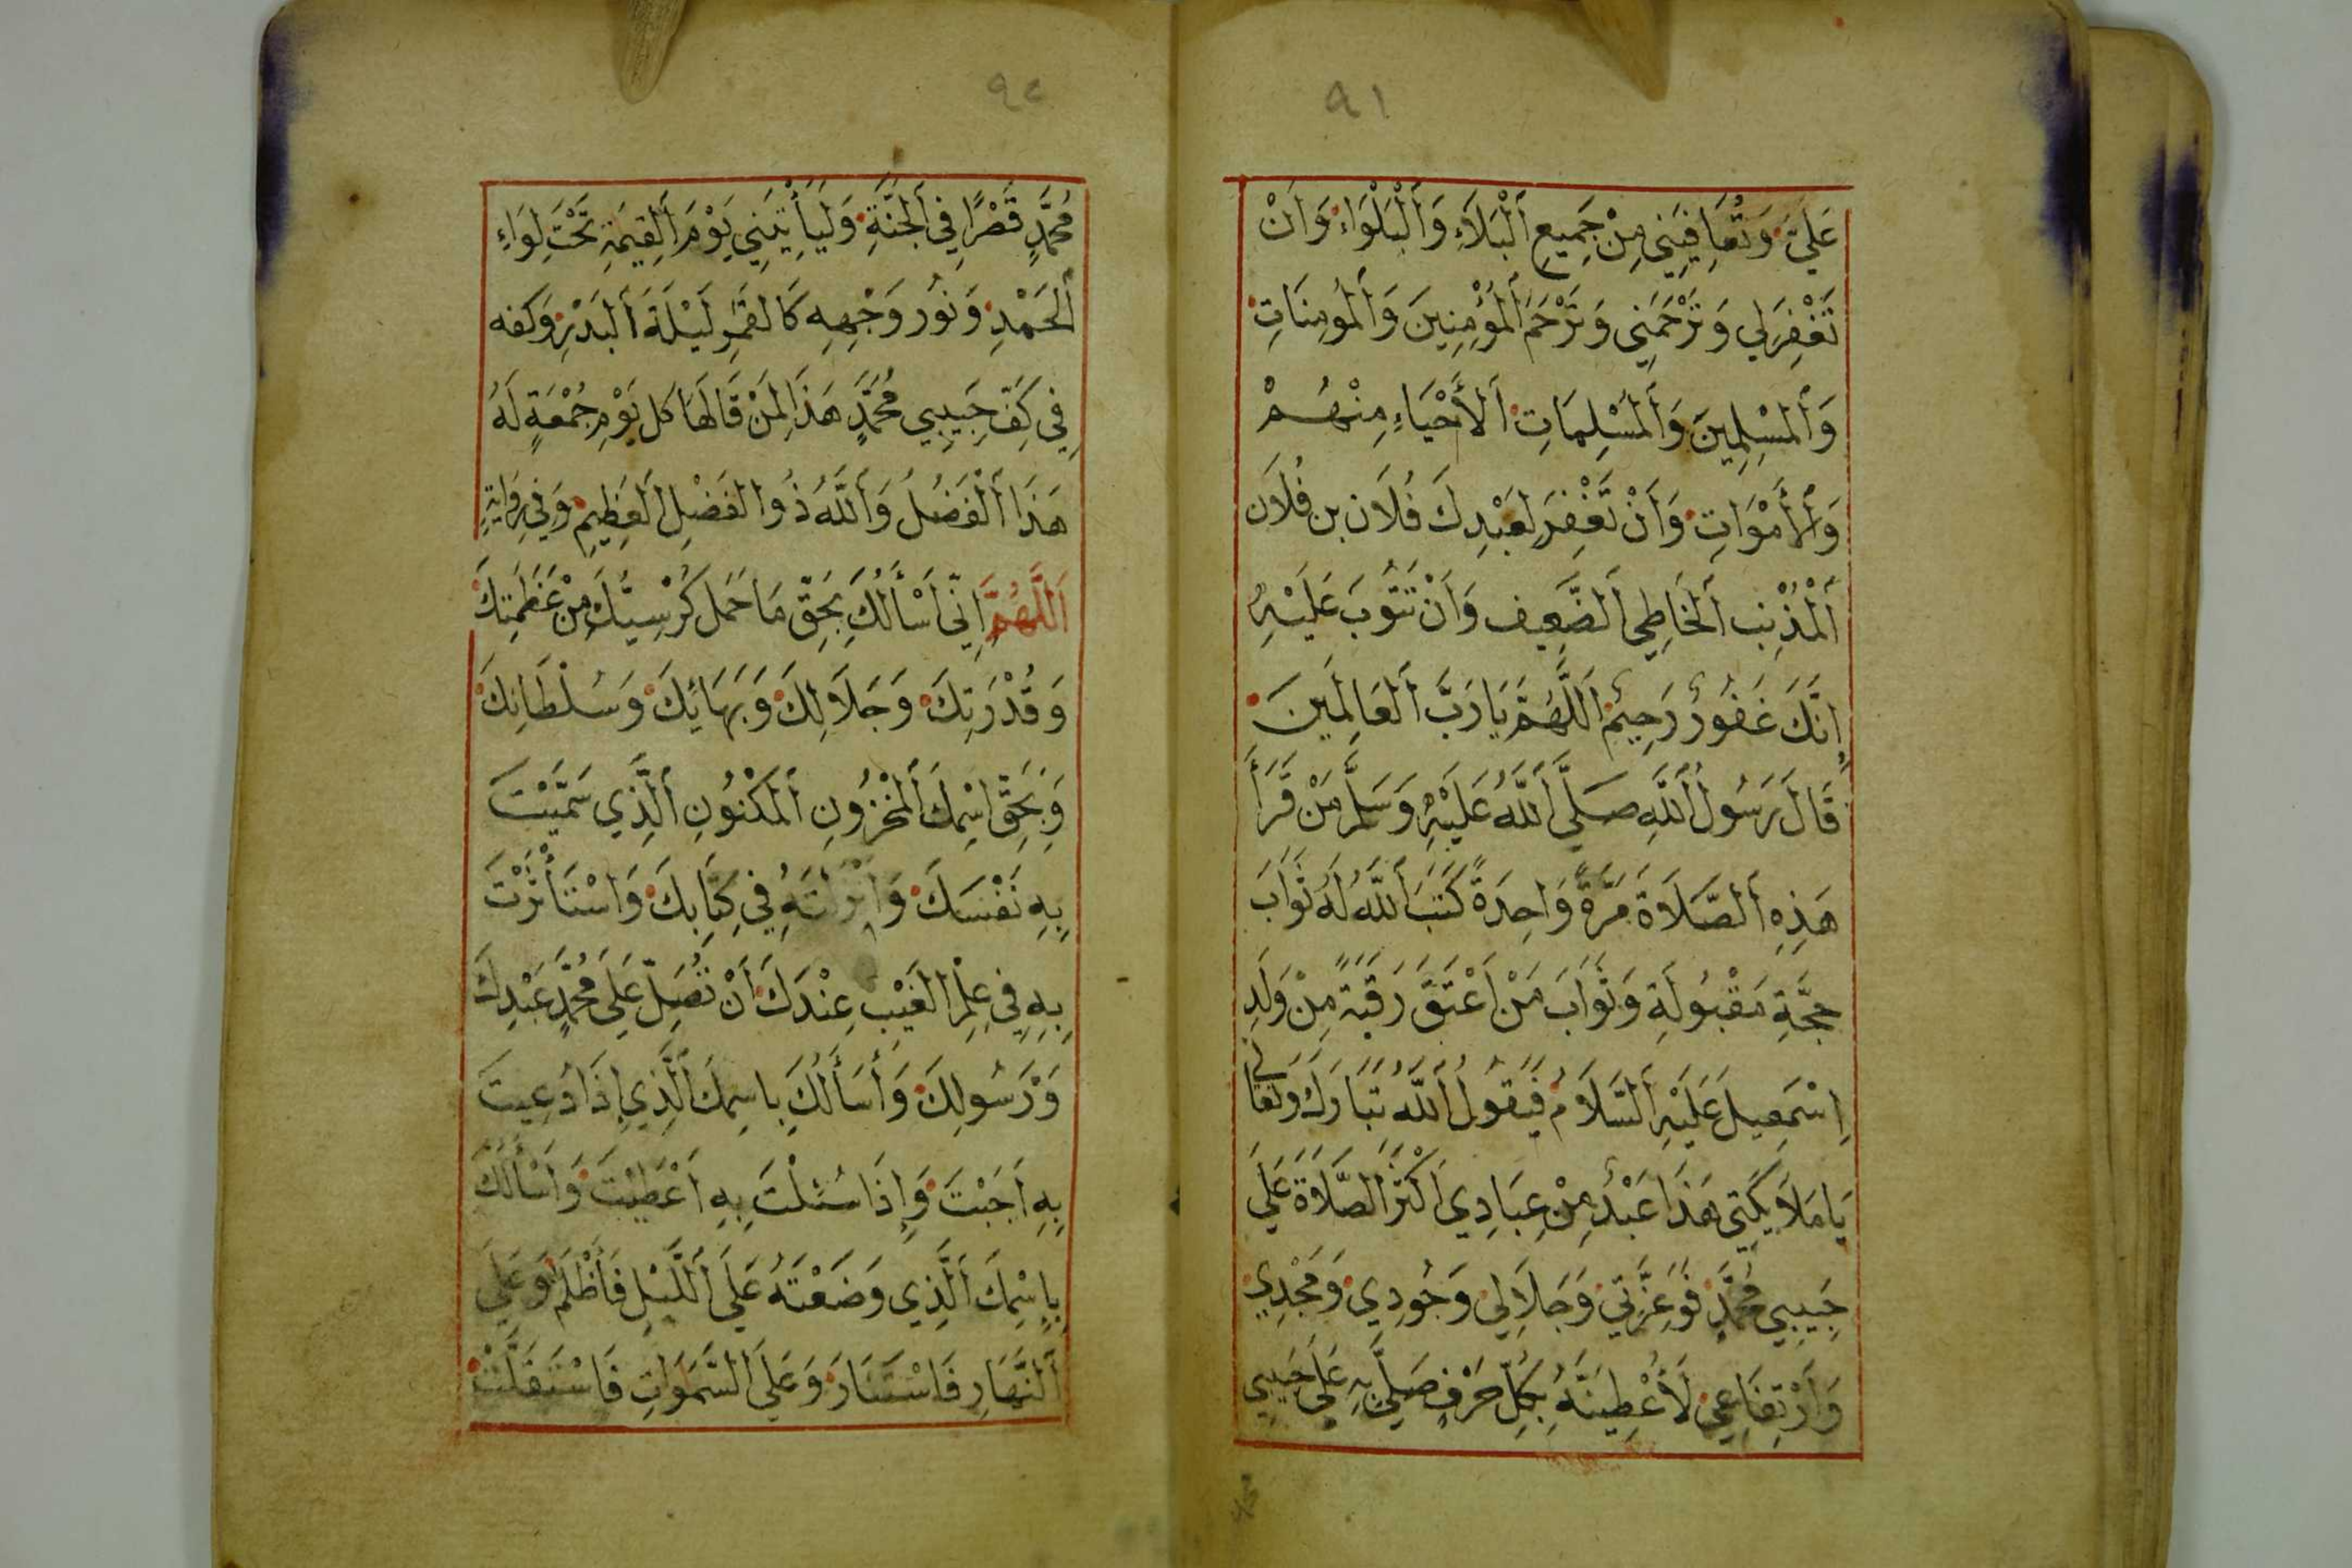 ٩١
عَلَيَّ وَتُعَافِيَنِي مِنْ جَمِيعِ ٱلْبَلَاءِ وَٱلْبَلْوَاءِ وَأَنْ
تَغْفِرَ لِي وَتَرْحَمَنِي وَتَرْحَمَ ٱلْمُؤْمِنِينَ وَٱلْمُومِنَاتِ
وَٱلْمُسْلِمِينَ وَٱلْمُسْلِمَاتِ ٱلْأَحْيَاءِ مِنْهُمْ
وَٱلْأَمْوَاتِ وَأَنْ تَغْفِرَ لِعَبْدِكَ فُلَان بن فُلَان
ٱلْمُذْنِب ٱلْخَاطِي ٱلضَّعِيف وَأَنْ تَتُوبَ عَلَيْهِ
إِنَّكَ غَفُورٌ رَحِيمٌ ٱللَّهُمَّ يَا رَبَّ ٱلْعَالَمِينَ
قَالَ رَسُولُ ٱللَّهِ صَلَّي ٱللَّهُ عَلَيْهِ وَسَلَّمَ مَنْ قَرَأَ
هَذِهِ ٱلصَّلَاةَ مَرَّةً وَاحِدَةً كَتَبَ ٱللَّهُ لَهُ ثَوَابَ
حِجَّةٍ مَقْبُولَةٍ وَثَوَابَ مَنْ أَعْتَقَ رَقَبَةً مِنْ وَلَدِ
إِسْمَعِيلَ عَلَيْهِ ٱلسَّلَامُ فَيَقُولُ ٱللَّهُ تَبَارَكَ وَتَعَالَى
يَا مَلَايِكَتِي هَذَا عَبْدٌ مِنْ عِبَادِي أَكْثَرَ ٱلصَّلَاةَ عَلَي
حَبِيبِي مُحَمَّدٍ فَوَعِزَّتِي وَجَلَالِي وَجُودِي وَمَجْدِي
وَٱرْتِفَاعِي لَأُعْطِيَنَّهُ بِكُلِّ حَرْفٍ صَلَّي بِهِ عَلَي حَبِيبِي
محمد
٩٢
مُحَمَّدٍ قَصْرًا فِي ٱلْجَنَّةِ وَلَيَأْتِيَنِي يَوْمَ ٱلْقِيَمَةِ تَحْتَ لِوَاءِ
ٱلْحَمْدِ وَنُور وَجْهِهِ كَالقَمَرِ لَيْلَةَ ٱلْبَدْرِ وَكفه
فِي كَفِّ حَبِيبِي مُحَمَّدٍ هَذَا لِمَنْ قَالَهَا كل يَوْمِ جُمْعَةٍ لَهُ
هَذَا ٱلْفَضْلُ وَٱللَّهُ ذُو الفَضْلِ ٱلْعَظِيمِ وَفِي رِوَايَةٍ
ٱللَّهُمَّ إِنِّي أَسْأَلُكَ بِحَقِّ مَا حَمَلَ كُرْسِيُّكَ مِنْ عَظَمَتِكَ
وَقُدْرَتِكَ وَجَلَالِكَ وَبَهَائِكَ وَسُلْطَانِكَ
وَبِحَقِّ اسْمِكَ ٱلْمَخْزُونِ ٱلْمَكْنُونِ ٱلَّذِي سَمَّيْتَ
بِهِ نَفْسَكَ وَأَنْزَلْتَهُ فِي كِتَابِكَ وَاسْتَأْثَرْتَ
بِهِ فِي عِلْمِ الغَيْبِ عِنْدَكَ أَنْ تُصَلِّ عَلَي مُحَمَّدٍ عَبْدِكَ
وَرَسُولِكَ وَأَسْأَلُكَ بِاسِمِكَ ٱلَّذِي إِذَا دُعِيتَ
بِهِ أَجَبْتَ وَإِذَا سُئِلْتَ بِهِ أَعْطَيْتَ وَأَسْأَلُكَ
بِإِسْمِكَ ٱلَّذِي وَضَعْتَهُ عَلَي ٱللَّيْلِ فَأَظْلَمَ وَعَلَي
ٱلنَّهَارِ فَاسْتَنَارَ وَعَلَي ٱلسَّمَوَاتِ فَاسْتَقَلَّتْ